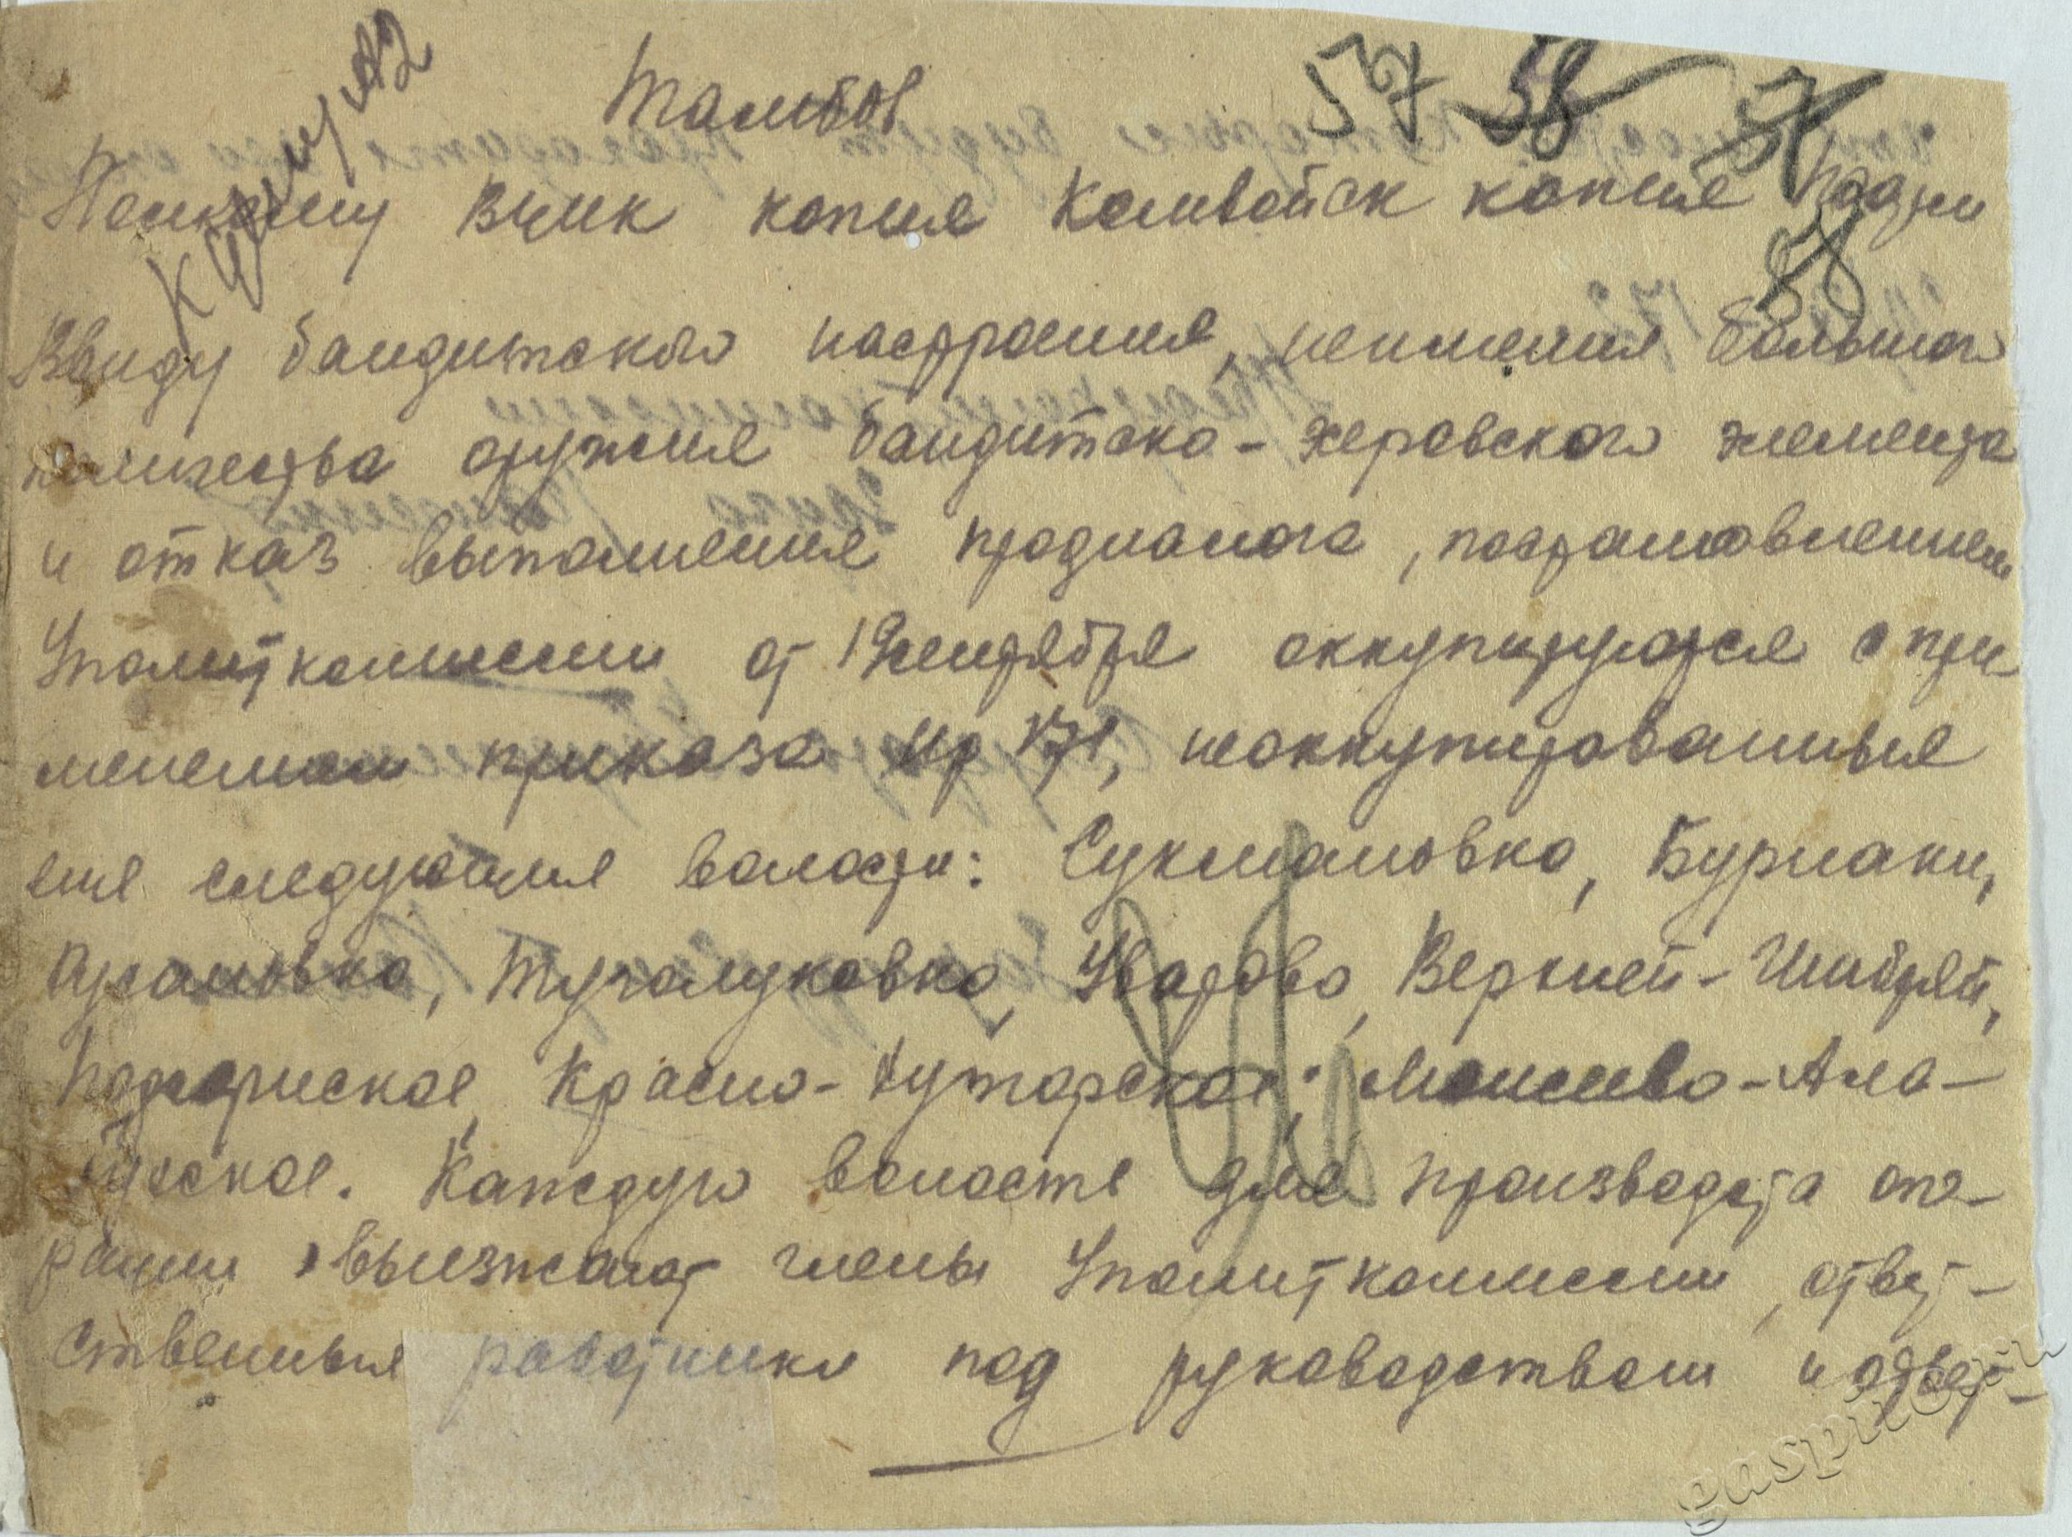 Тамбов
57 58
К делу А2
Полкому ВЦИК копия Комвойск копия
58
Ввиду бандитского настроения, неимения большого
количества оружия бандитско-
и отказ выполнения продналога, постановлением
Уполиткомиссии от сентября оккупируются с при
менением приказа Нр 171, неоккупированные
еще следующия волости: Сукмановка, Бурнаки,
Русановка, Туголуковка, Уварово, Верхней-Шибряй,
Подгоренское, Красно-Хуторское, Моисеево-Ала-
бужское. Каждую волость для производства опе-
рации выезжают члены Уполиткомиссии, ответ-
ственные работники под руководством и ответ-
gaspito.ru